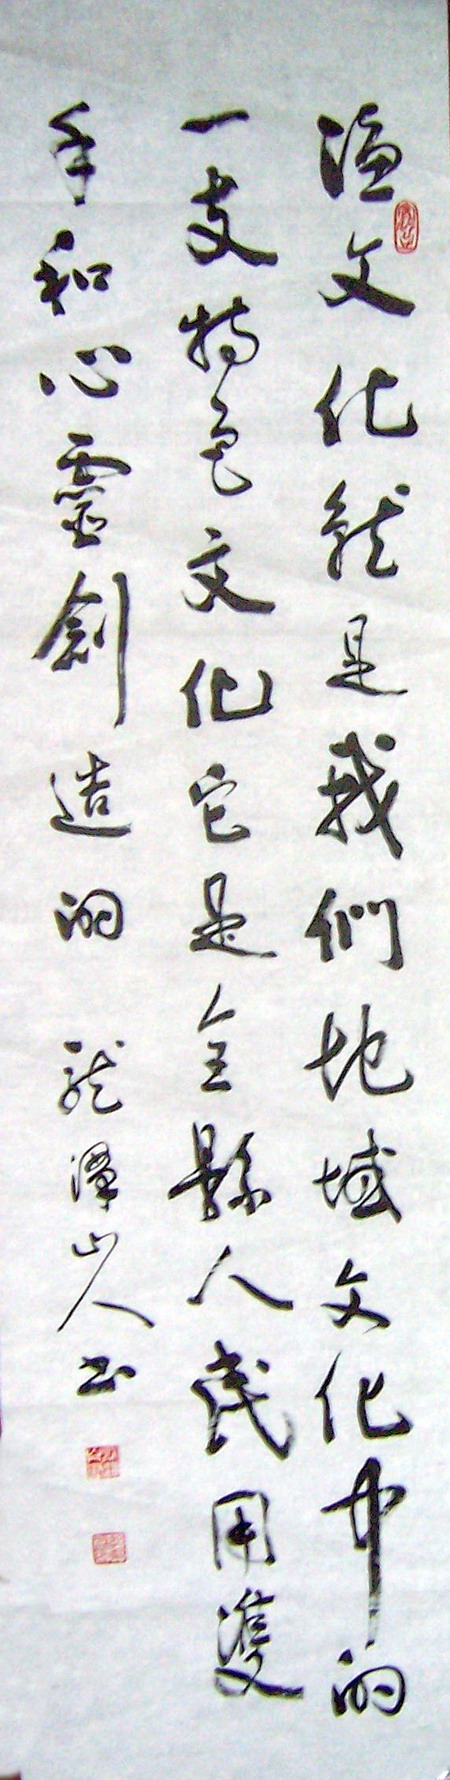 文化就是我們地域文化中的
一支特色文化它是全縣人民用雙
手和心靈創造的 龍潭山人書